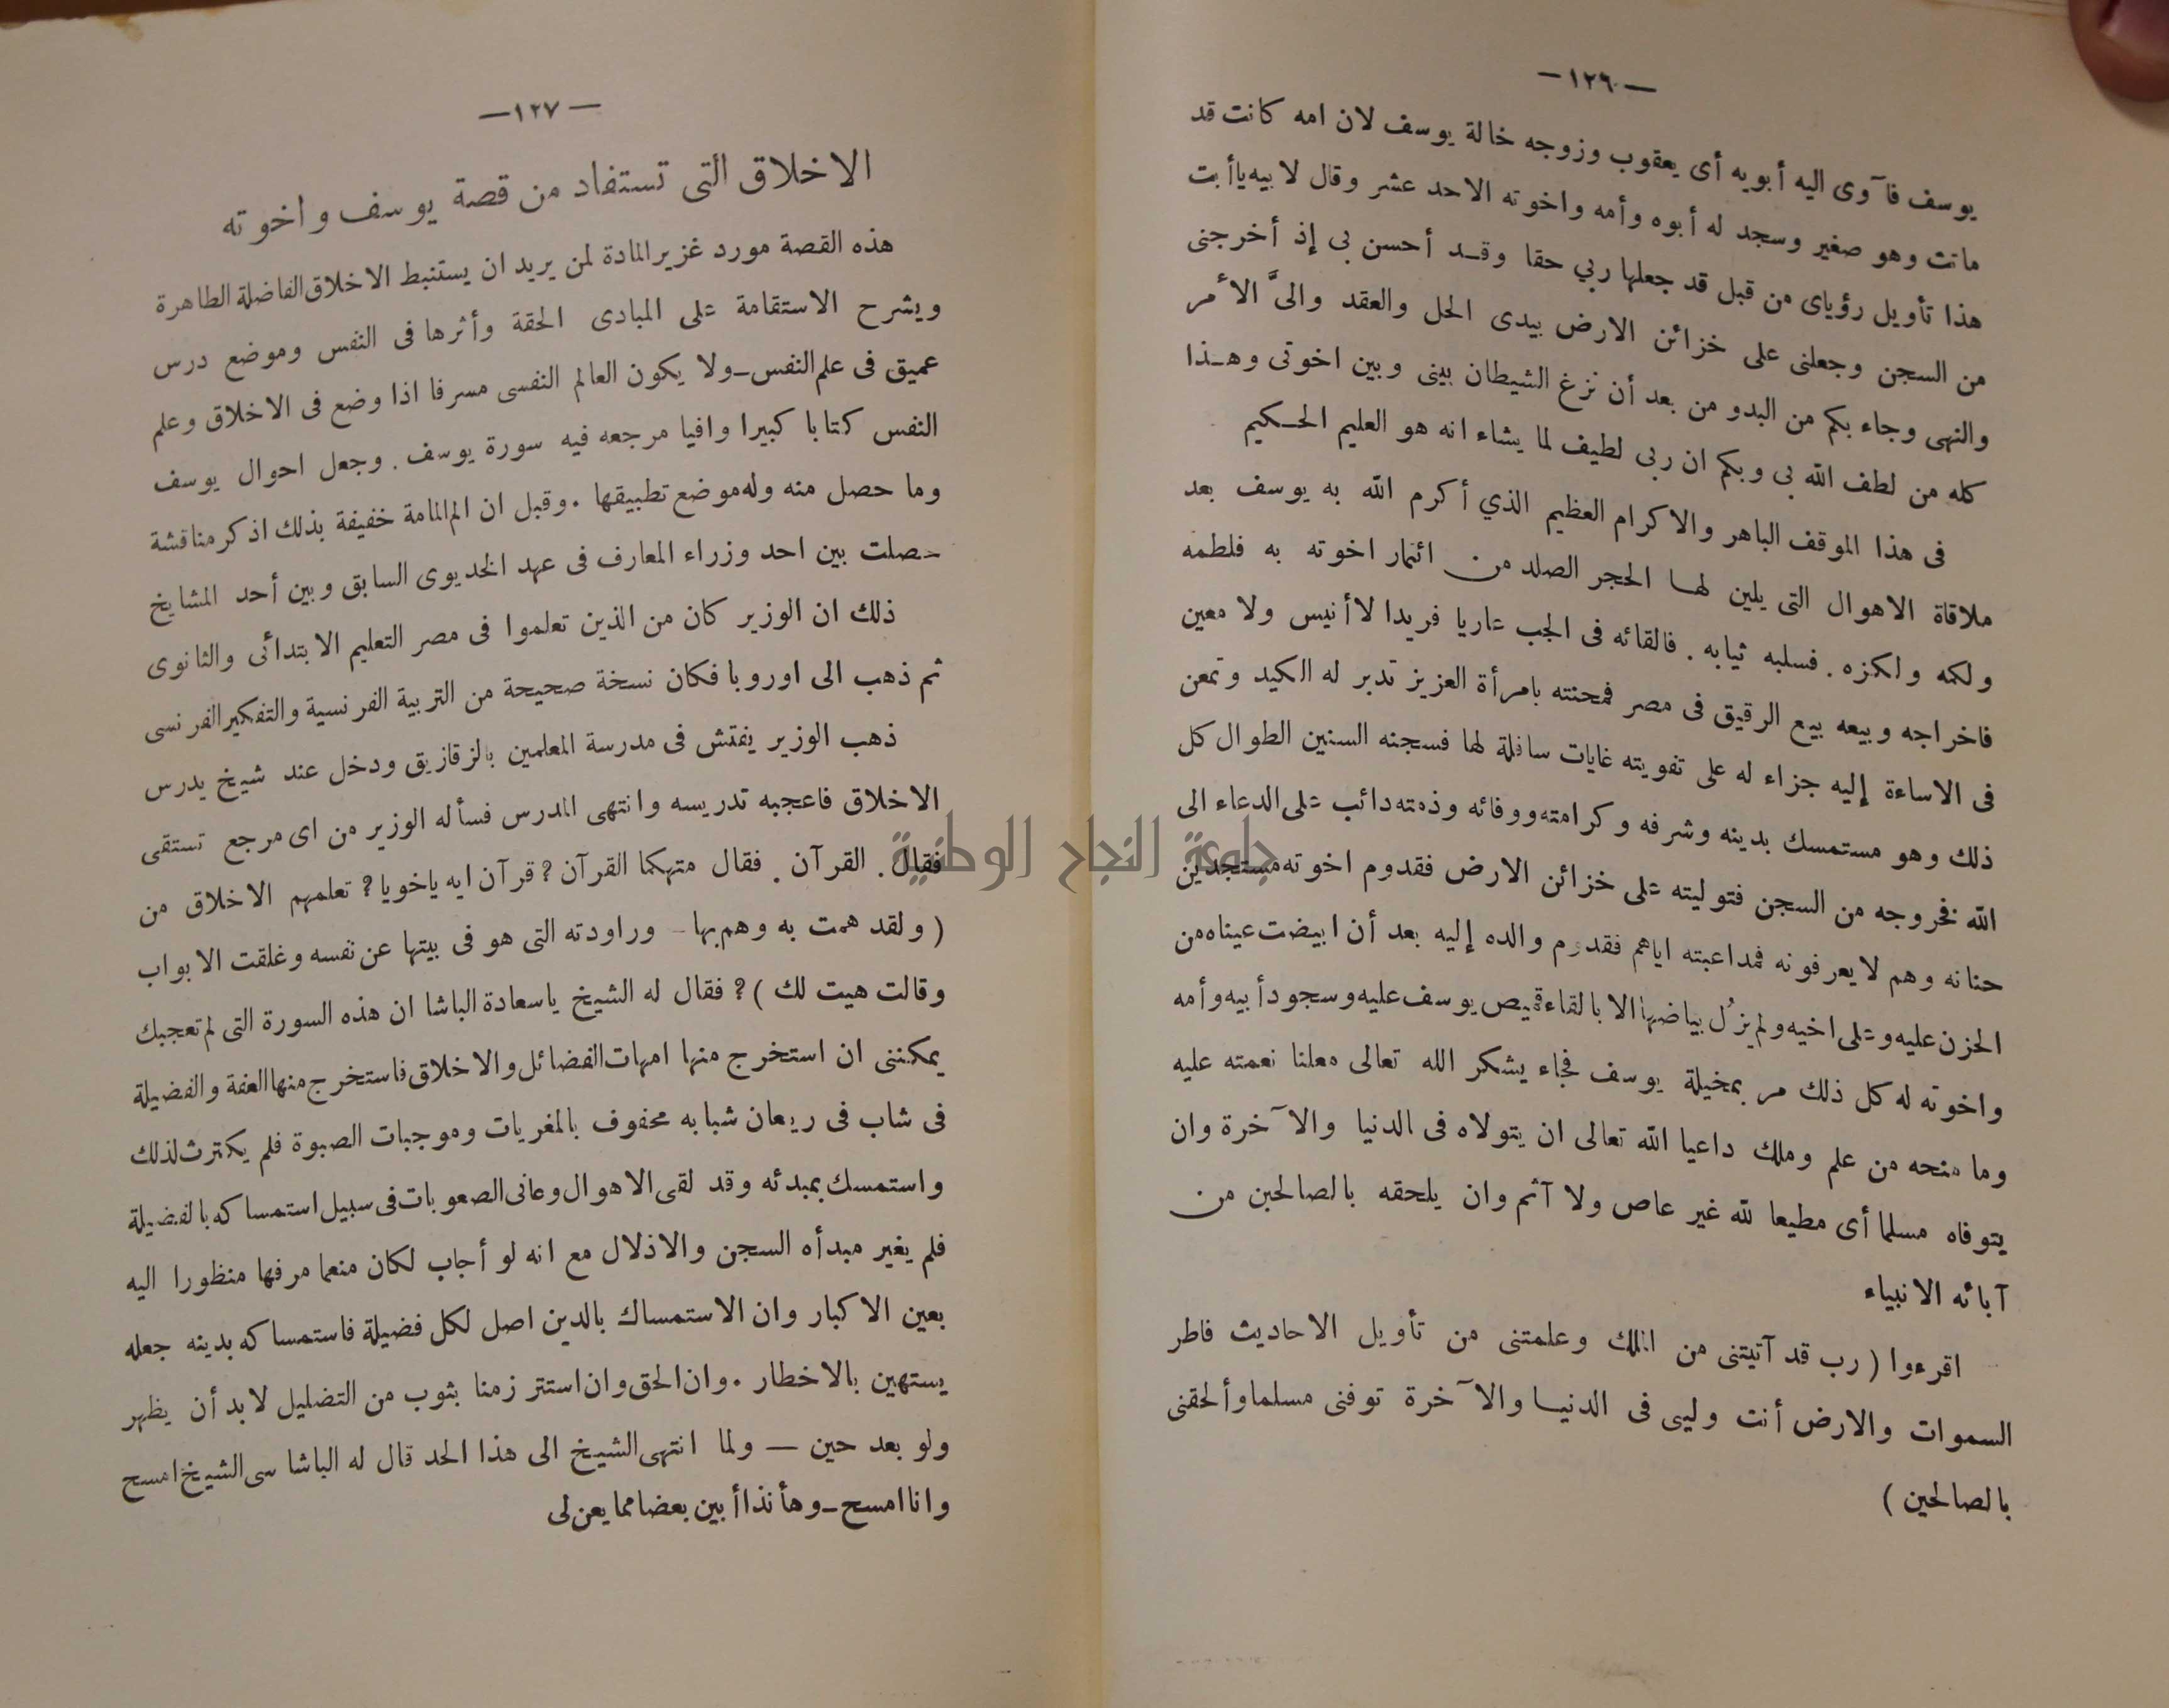 — ١٢٦ —
يوسف فآوى اليه أبويه أى يعقوب وزوجه خالة يوسف لان امه كانت قد
ماتت وهو صغير وسجد له أبوه وأمه واخوته الاحد عشر وقال لابيه ياأبت
هذا تأويل رؤياى من قبل قد جعلها ربي حقا وقد أحسن بى إذ أخرجنى
من السجن وجعلنى على خزائن الارض بيدى الحل والعقد والىَّ الأمر
والنهى وجاء بكم من البدو من بعد أن نزغ الشيطان بينى وبين اخوتى وهذا
كله من لطف الله بى وبكم ان ربى لطيف لما يشاء انه هو العليم الحكيم
فى هذا الموقف الباهر والاكرام العظيم الذي أكرم الله به يوسف بعد
ملاقاة الاهوال التى يلين لها الحجر الصلد من ائتمار اخوته به فلطمه
ولكمه ولكزه . فسلبه ثيابه . فالقائه فى الجب عاريا فريدا لاأنيس ولا معين
فاخراجه وبيعه بيع الرقيق فى مصر فمحنته بامرأة العزيز تدبر له الكيد وتمعن
فى الاساءة إليه جزاء له على تفويته غايات سافلة لها فسجنه السنين الطوال كل
ذلك وهو مستمسك بدينه وشرفه وكرامته ووفائه وذمته دائب على الدعاء الى
الله فخروجه من السجن فتوليته على خزائن الارض فقدوم اخوته مستجدين
حنانه وهم لايعرفونه فمداعبته اياهم فقدوم والده إليه بعد أن ابيضت عيناه من
الحزن عليه وعلى اخيه ولم يزُل بياضها الا بالقاء قميص يوسف عليه وسجود أبيه وأمه
واخوته له كل ذلك مر بمخيلة يوسف فجاء يشكر الله تعالى معلنا نعمته عليه
وما منحه من علم وملك داعيا الله تعالى ان يتولاه فى الدنيا والآخرة وان
يتوفاه مسلما أى مطيعا لله غير عاص ولا آثم وان يلحقه بالصالحين من
آبائه الانبياء
اقرءوا ( رب قد آتيتنى من الملك وعلمتنى من تأويل الاحاديث فاطر
السموات والارض أنت وليى فى الدنيا والآخرة توفنى مسلما وألحقنى
بالصالحين )
— ١٢٧ —
الاخلاق التى تستفاد من قصة يوسف واخوته
هذه القصة مورد غزير المادة لمن يريد ان يستنبط الاخلاق الفاضلة الطاهرة
ويشرح الاستقامة على المبادى الحقة وأثرها فى النفس وموضع درس
عميق فى علم النفس ــ ولا يكون العالم النفسى مسرفا اذا وضع فى الاخلاق وعلم
النفس كتابا كبيرا وافيا مرجعه فيه سورة يوسف . وجعل احوال يوسف
وما حصل منه وله موضع تطبيقها . وقبل ان الم المامة خفيفة بذلك اذكر مناقشة
حصلت بين احد وزراء المعارف فى عهد الخديوى السابق وبين أحد المشايخ
ذلك ان الوزير كان من الذين تعلموا فى مصر التعليم الابتدائى والثانوى
ثم ذهب الى اوروبا فكان نسخة صحيحة من التربية الفرنسية والتفكير الفرنسى
ذهب الوزير يفتش فى مدرسة المعلمين بالزقازيق ودخل عند شيخ يدرس
الاخلاق فاعجبه تدريسه وانتهى المدرس فسأله الوزير من اى مرجع تستقى
فقال . القرآن . فقال متهكما القرآن ؟ قرآن ايه ياخويا ؟ تعلمهم الاخلاق من
( ولقد همت به وهم بها ــ وراودته التى هو فى بيتها عن نفسه وغلقت الابواب
وقالت هيت لك ) ؟ فقال له الشيخ ياسعادة الباشا ان هذه السورة التى لم تعجبك
يمكننى ان استخرج منها امهات الفضائل والاخلاق فاستخرج منها العفة والفضيلة
فى شاب فى ريعان شبابه محفوف بالمغريات وموجبات الصبوة فلم يكترث لذلك
واستمسك بمبدئه وقد لقى الاهوال وعانى الصعوبات فى سبيل استمساكه بالفضيلة
فلم يغير مبدأه السجن والاذلال مع انه لو أجاب لكان منعما مرفها منظورا اليه
بعين الاكبار وان الاستمساك بالدين اصل لكل فضيلة فاستمساكه بدينه جعله
يستهين بالاخطار . وان الحق وان استتر زمنا بثوب من التضليل لابد أن يظهر
ولو بعد حين — ولما انتهى الشيخ الى هذا الحد قال له الباشا سى الشيخ امسح
وانا امسح ــ وهأنذا أبين بعضا مما يعن لى
جامعة النجاح الوطنية